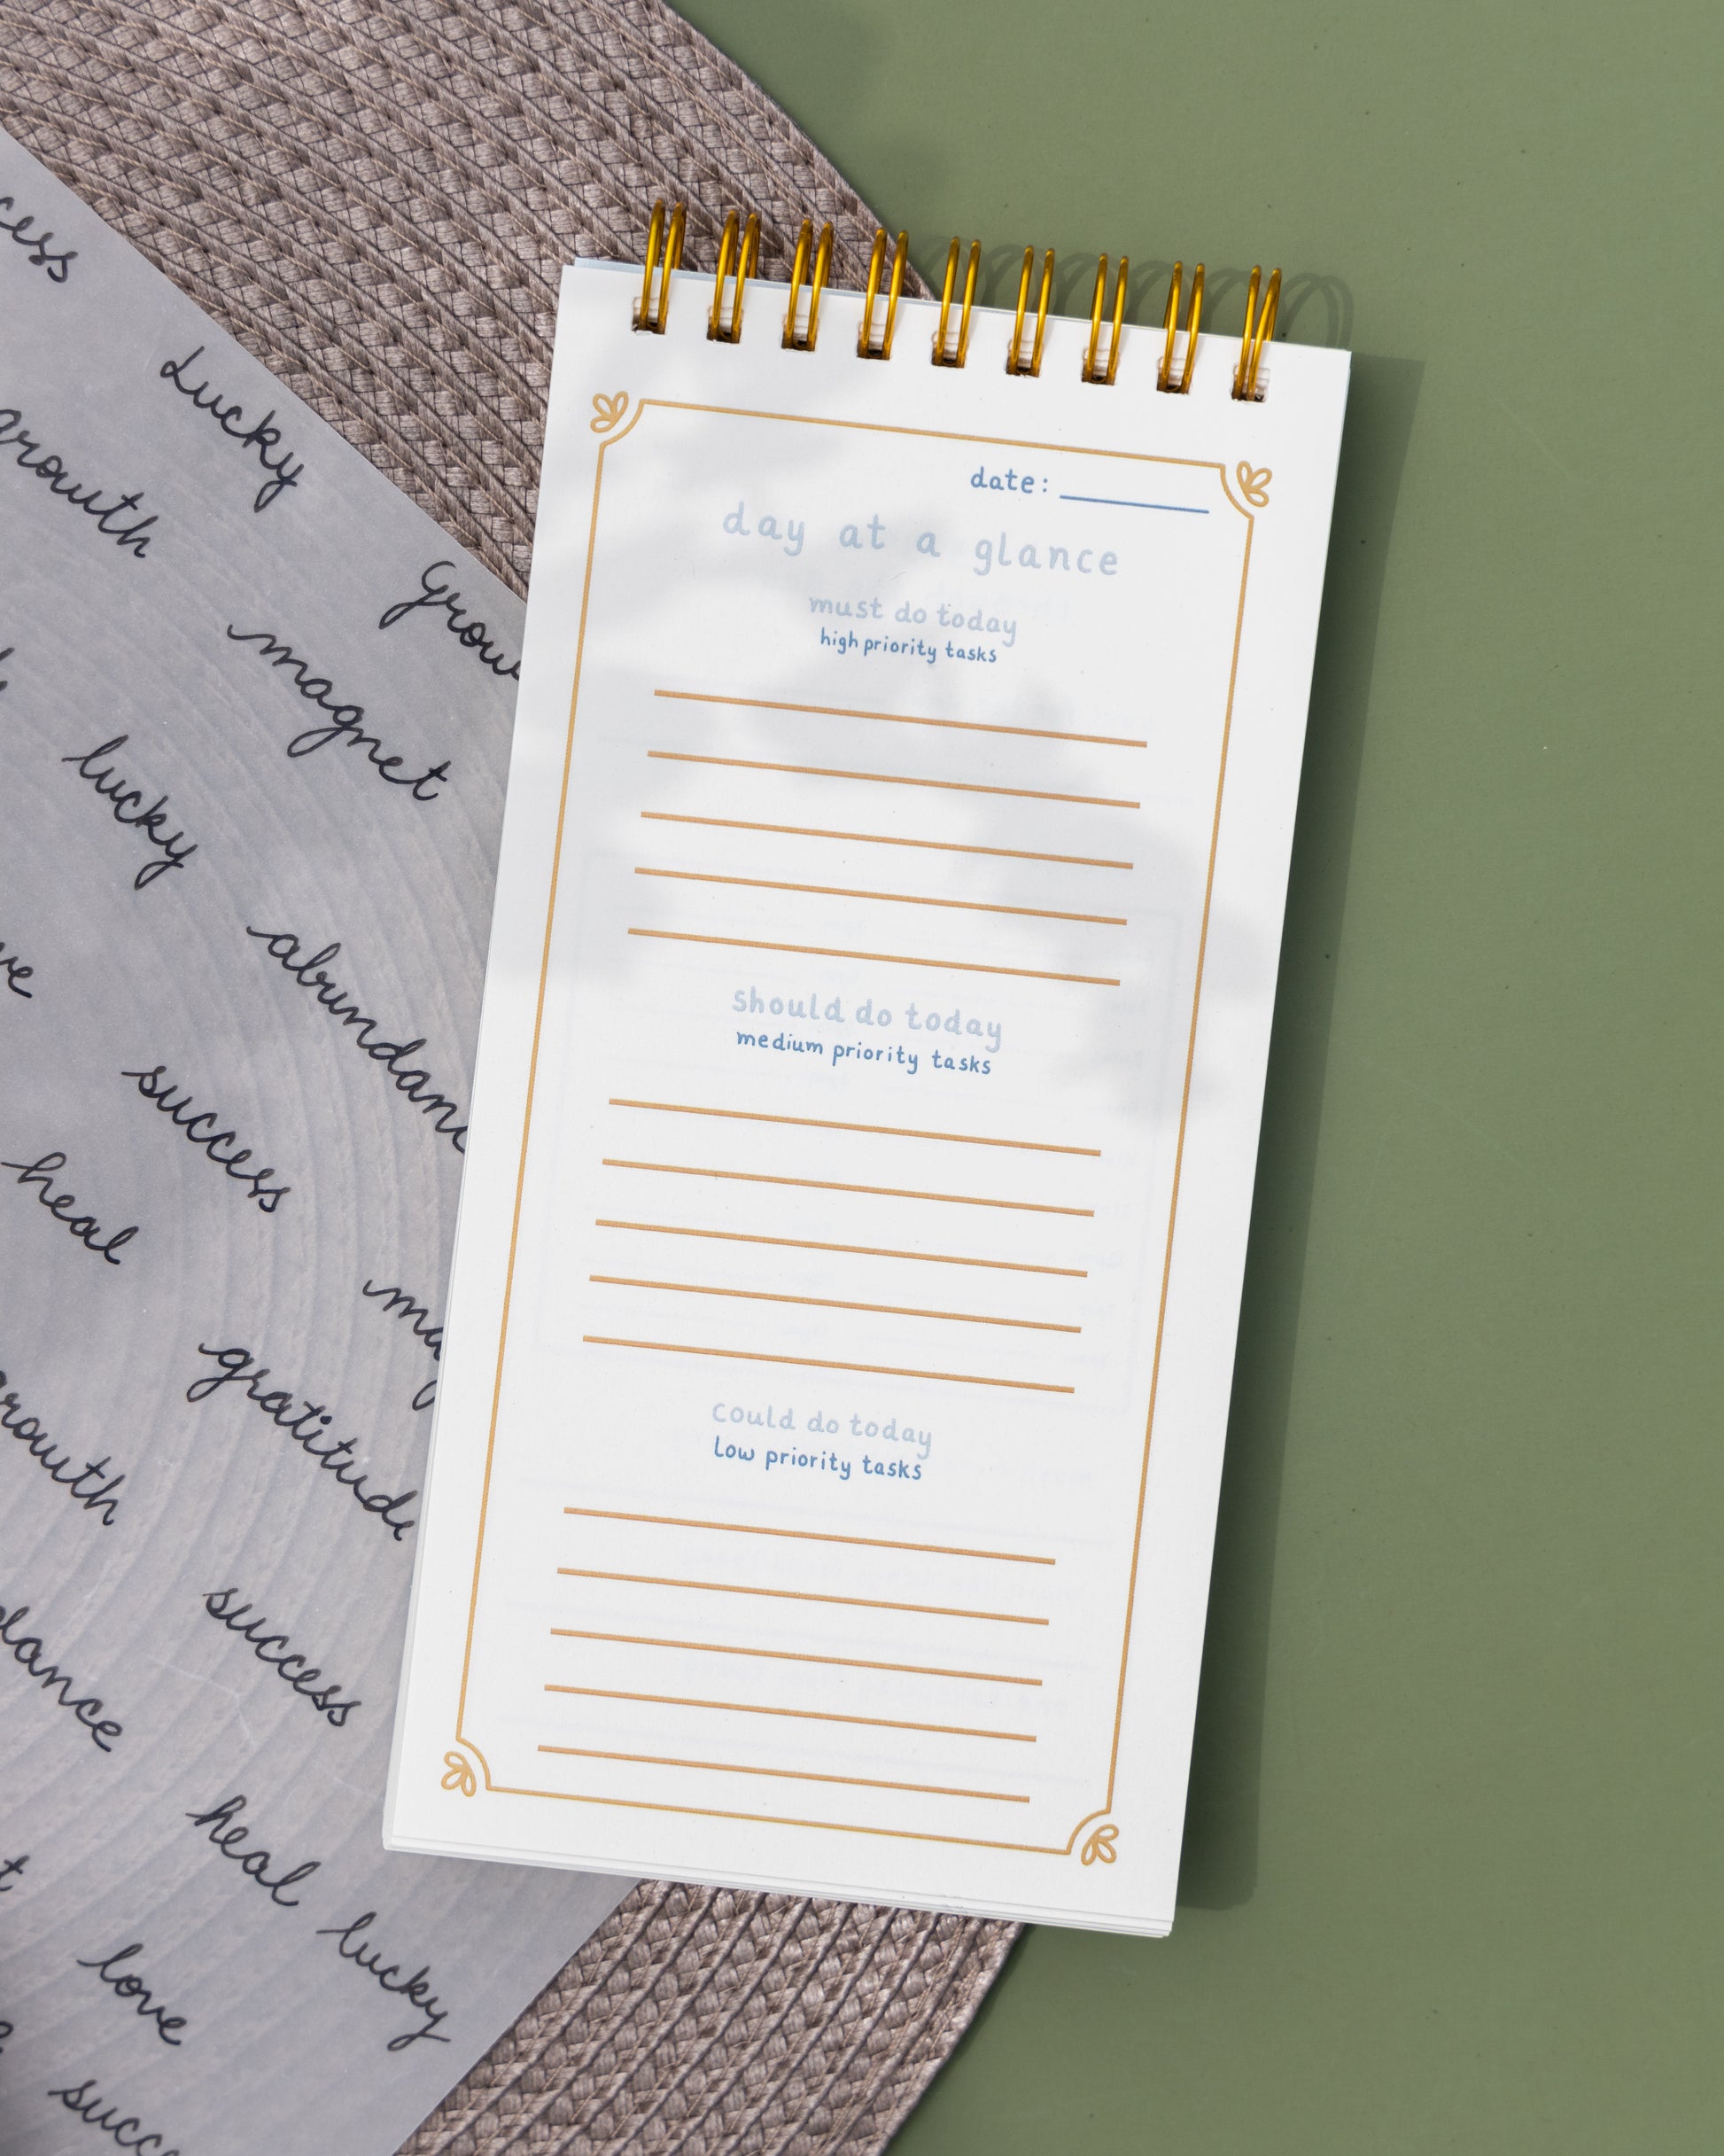 date:
day at a glance
must do today
high priority tasks
should do today
medium priority tasks
could do today
low priority tasks
cess
Lucky
growth
Grow
magnet
lucky
ve
abundanc
success
heal
ma
gratitude
rowth
success
dance
heal
lucky
t
love
succe